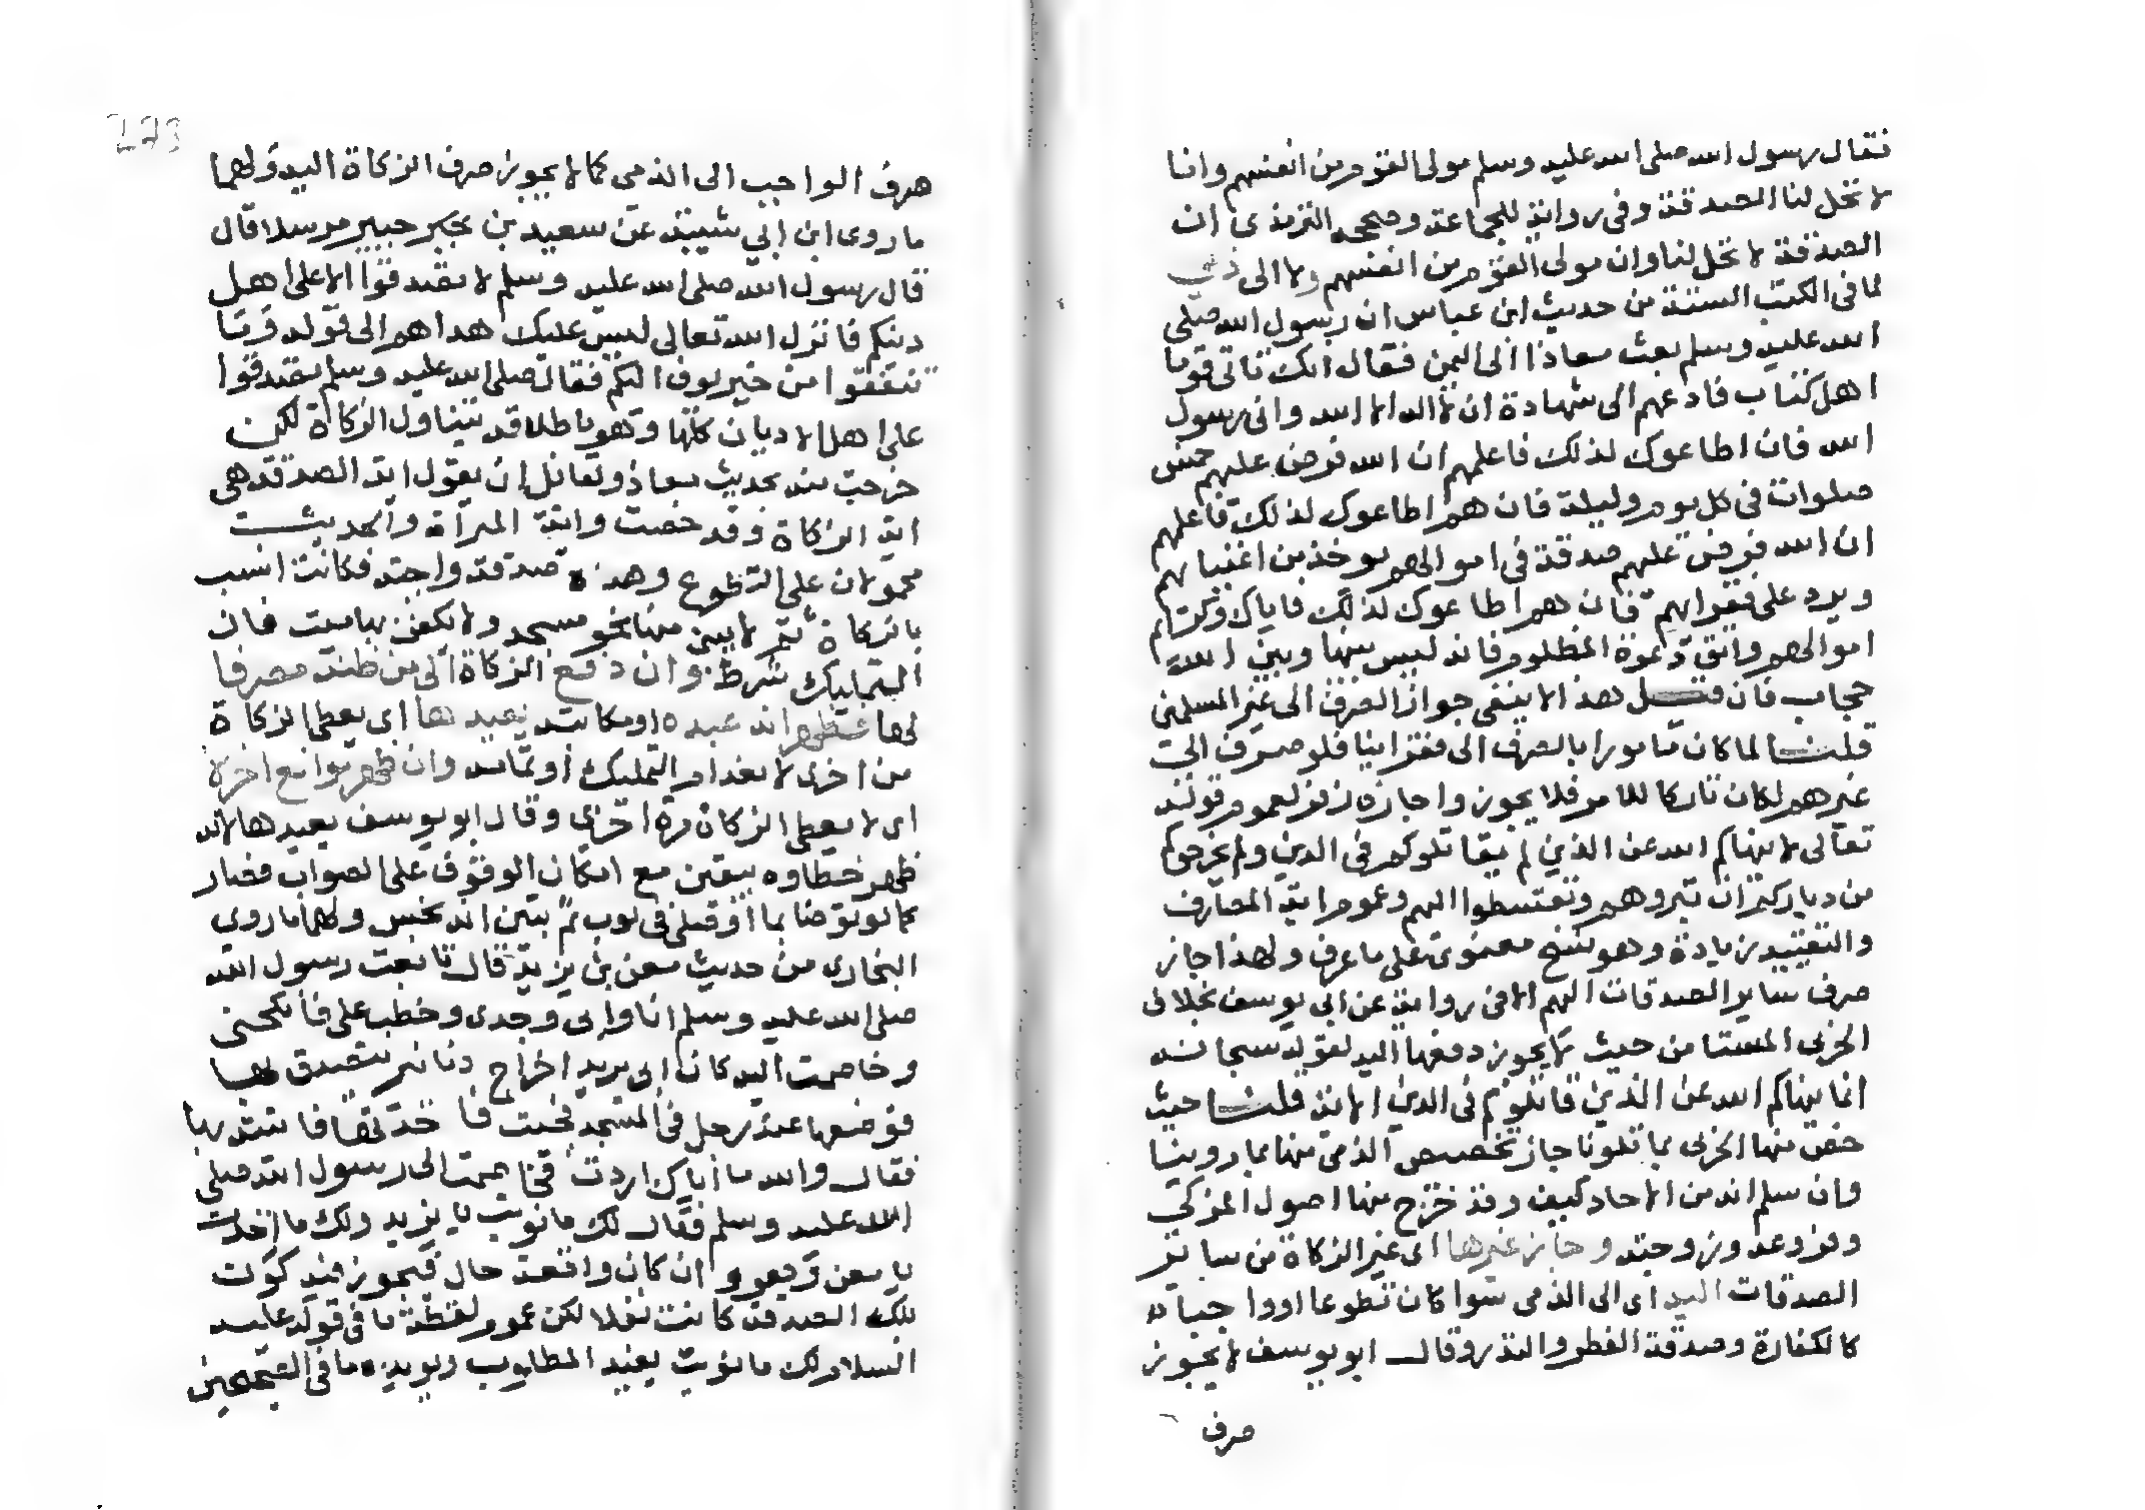 فقال رسول الله صلى الله عليه وسلم مولى القوم من انفسهم وانا
لا تحل لنا الصدقة وفى رواية للجماعة وصححه الترمذى ان
الصدقة لا تحل لنا وان مولى القوم من انفسهم ولا الى ذمى
لما فى الكتب الستة من حديث ابن عباس ان رسول الله صلى
الله عليه وسلم بعث معاذا الى اليمن فقال انك تاتى قوما
اهل كتاب فادعهم الى شهادة ان لا اله الا الله وانى رسول
الله فان اطاعوك لذلك فاعلمهم ان الله فرض عليهم خمس
صلوات فى كل يوم وليلة فان هم اطاعوك لذلك فاعلمهم
ان الله فرض عليهم صدقة فى اموالهم توخذ من اغنيايهم
وترد على فقرايهم فان هم اطاعوك لذلك فاياك وكرايم
اموالهم واتق دعوة المظلوم فانه ليس بينها وبين الله
حجاب فان قيل هذا لا ينفى جواز الصرف الى غير المسلمين
قلنا لما كان مامورا بالصرف الى فقراينا فلو صرف الى
غيرهم لكان تاركا للامر فلا يجوز واجازه زفر لعموم قوله
تعالى لا ينهاكم الله عن الذين لم يقاتلوكم فى الدين ولم يخرجوكم
من دياركم ان تبروهم وتقسطوا اليهم وعموم اية المصارف
والتقييد زيادة وهو نسخ معنوى على ما عرف ولهذا جاز
صرف ساير الصدقات اليهم الا فى رواية عن ابى يوسف بخلاف
الحربى المستامن حيث لا يجوز دفعها اليه لقوله سبحانه
انما ينهاكم الله عن الذين قاتلوكم فى الدين الاية قلنا حيث
خص منها الحربى بما تلونا جاز تخصيص الذمى منها بما روينا
وان سلم انه من الاحاد كيف وقد خرج منها اصول المزكى
وفروعه وزوجته وجاز غيرها اى غير الزكاة من ساير
الصدقات اليه اى الى الذمى سوا كان تطوعا او واجبا
كالكفارة وصدقة الفطر والنذر وقال ابو يوسف لا يجوز
صرف
صرف الواجب الى الذمى كما لا يجوز صرف الزكاة اليه ولهما
ما روى ابن ابي شيبة عن سعيد بن جبير مرسلا قال
قال رسول الله صلى الله عليه وسلم لا تصدقوا الا على اهل
دينكم فانزل الله تعالى ليس عليك هداهم الى قوله وما
تنفقوا من خير يوف اليكم فقال صلى الله عليه وسلم تصدقوا
على اهل الاديان كلها وهو باطلاقه يتناول الزكاة لكن
خرجت منه بحديث معاذ ولقائل ان يقول اية الصدقة هى
اية الزكاة وقد خصت واية المبرأة والحديث
محمولان على التطوع وهذه صدقة واجبة فكانت انسب
بالزكاة ثم لا يبنى منها نحو مسجد ولا يكفن بها ميت فان
التمليك شرط وان دفع الزكاة الى من ظنه مصرفا
لها فظهر انه عبده او مكاتبه يعيدها اى يعطى الزكاة
من اخرى لانعدام التمليك او تمامه وان ظهر موانع اخر لا
اى لا يعطى الزكاة مرة اخرى وقال ابو يوسف يعيدها لانه
ظهر خطاوه بيقين مع امكان الوقوف على الصواب فصار
كما لو توضا بما او صلى فى ثوب ثم تبين انه نجس ولهما ما روى
البخارى من حديث معن بن يزيد قال بايعت رسول الله
صلى الله عليه وسلم انا وابى وجدى وخطب على فانكحنى
وخاصمت اليه كان ابى يزيد اخراج دنانير يتصدق بها
فوضعها عند رجل فى المسجد فجيت فاخذتها فاتيته بها
فقال والله ما اياك اردت فخاصمت الى رسول الله صلى
الله عليه وسلم فقال لك ما نويت يا يزيد ولك ما اخذت
يا معن وهو وان كان واقعة حال فيجوز فيه كون
تلك الصدقة كانت نفلا لكن عموم لفظة ما فى قوله عليه
السلام لك ما نويت يفيد المطلوب ويويده ما فى الصحيحين